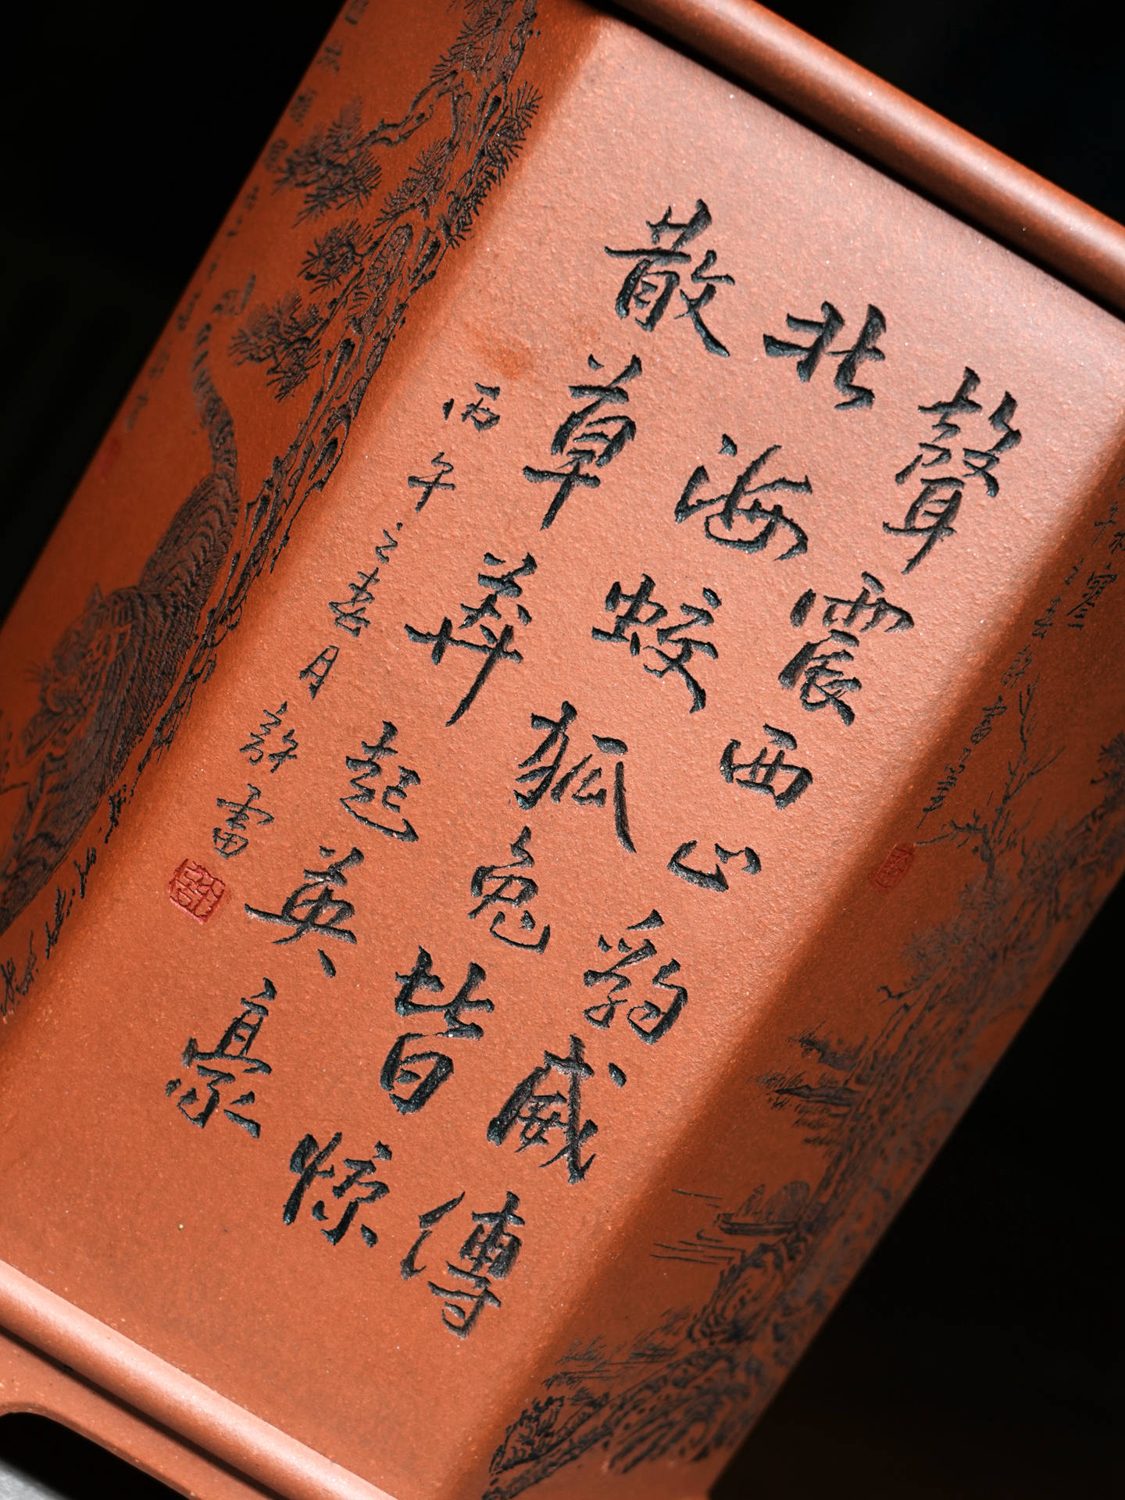 聲震西山豹威傳
北海蛟狐兔皆惊
散草莽起英豪
丙午之春月